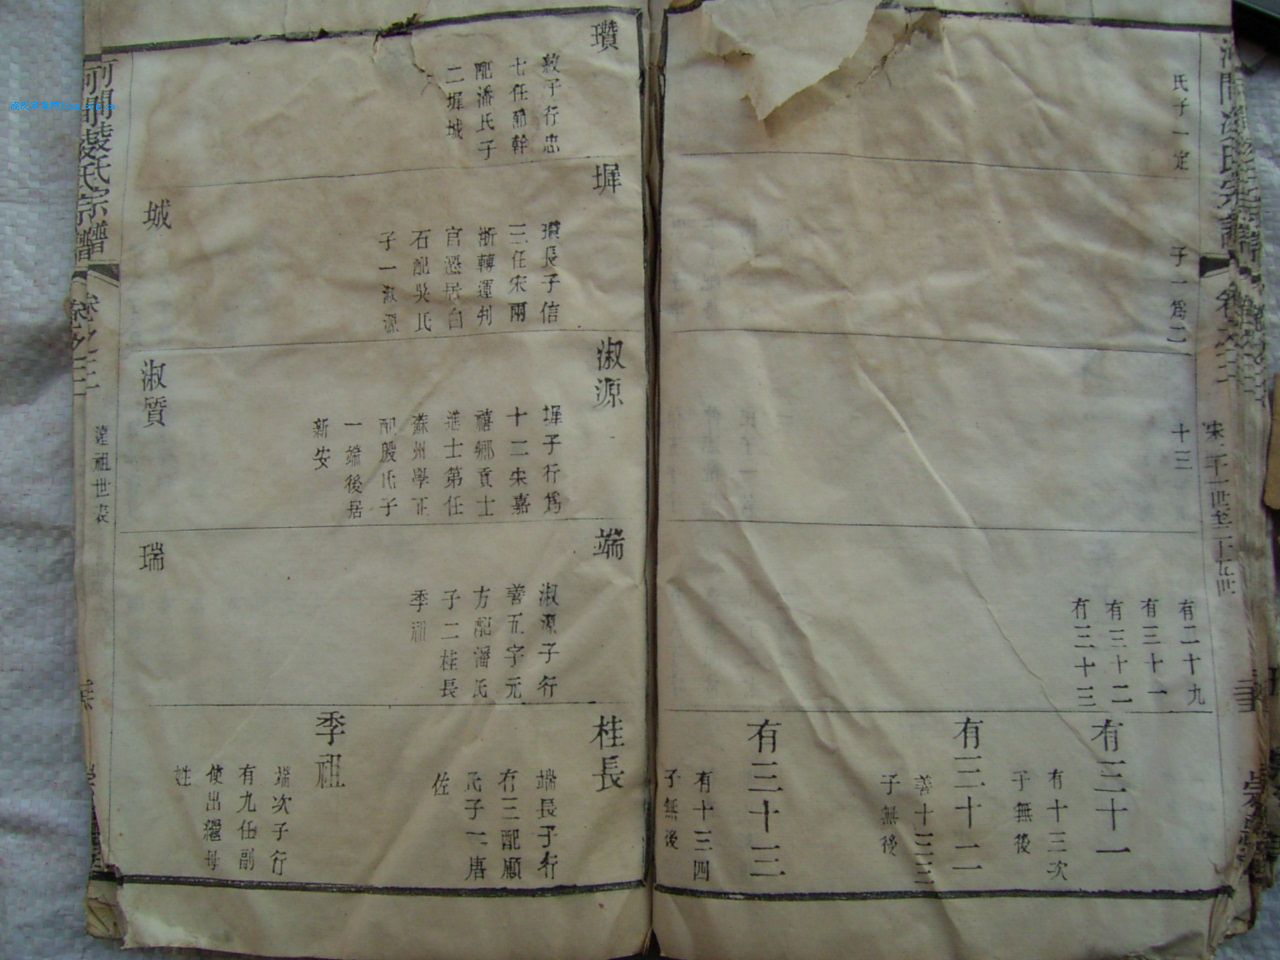 氏子一定
子一為二
十三
有二十九
有三十一
有三十二
有三十三
有三十一
有十三次
子無後
有三十二
善十三三
子無後
有三十三
有十三四
子無後
宋二十一世至二十五世
瓚
敦子行忠
七任節幹
配潘氏子
二墀城
墀
瓚長子信
三任宋兩
浙轉運判
官遷居白
石配吳氏
子一淑源
城
淑源
墀子行為
十二宋嘉
禧鄉貢士
進士第任
蘇州學正
配殷氏子
一端後居
新安
淑質
端
淑源子行
善五字元
方配潘氏
子二桂長
季祖
瑞
桂長
端長子行
有三配顧
氏子一唐
佐
季祖
端次子行
有九任副
使出繼母
姓
河間凌氏宗譜
卷之三
遠祖世表